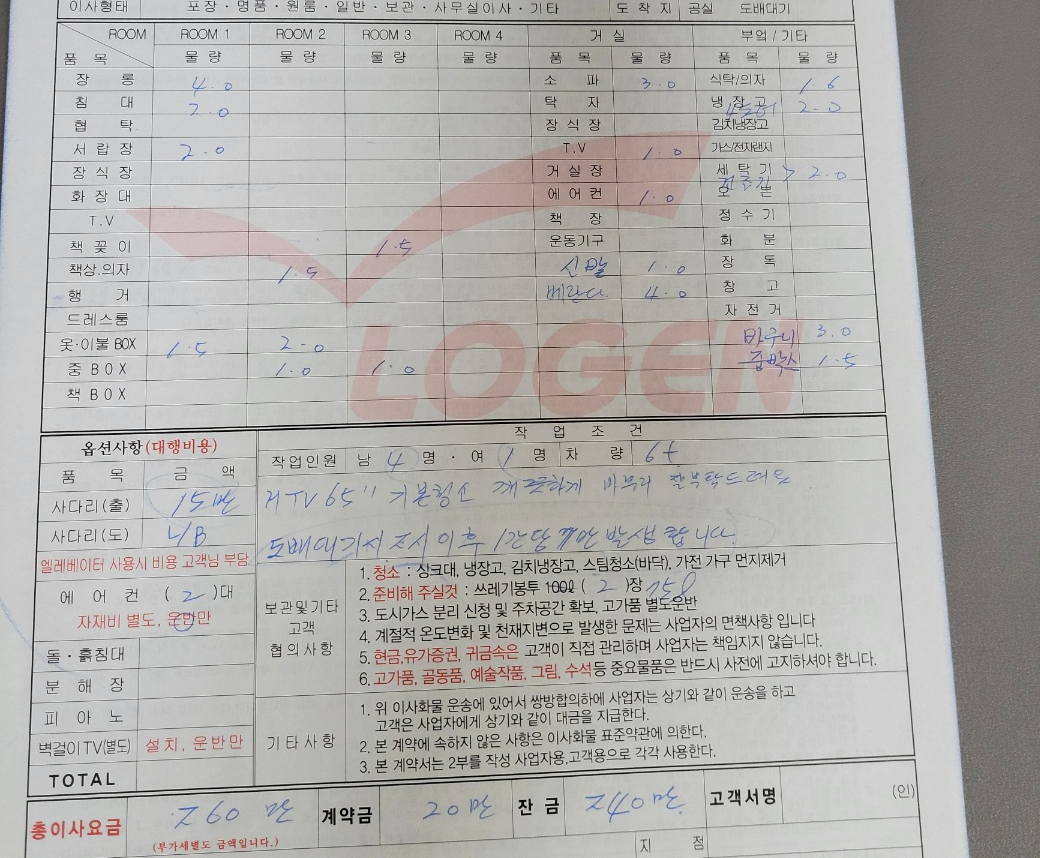 이사형태 포장·명품·원룸·일반·보관·사무실이사·기타 도착지 공실 도배대기
ROOM ROOM 1 ROOM 2 ROOM 3 ROOM 4 거실 부엌/기타
품목 물량 물량 물량 물량 품목 물량 품목 물량
장롱 4.0 소파 3.0 식탁/의자 1.6
침대 2.0 탁자 냉장고 2.0
협탁 장식장 김치냉장고
서랍장 2.0 T.V 1.0 가스/전자랜지
장식장 거실장 세탁기 > 2.0
화장대 에어컨 1.0 건조기 오븐
T.V 책장 정수기
책꽂이 1.5 운동기구 화분
책상.의자 1.5 신발 1.0 장독
행거 베란다 4.0 창고
드레스룸 자전거
옷·이불 BOX 1.5 2.0 바구니 3.0
중 BOX 1.0 1.0 중박스 1.5
책 BOX
LOGEN
옵션사항(대행비용) 작업조건
품목 금액 작업인원 남 4 명·여 1 명 차량 6t
사다리(출) 15만 TV 65" 기본청소 깨끗하게 마무리 잘부탁드려요
사다리(도) N/B 도배대기시 이후 발생 됩니다.
엘레베이터 사용시 비용 고객님 부담
에어컨 (2)대
자재비 별도, 운반만
돌·흙침대
분해장
피아노
벽걸이TV(별도) 설치, 운반만
TOTAL
보관및기타
고객
협의사항
1. 청소 : 싱크대, 냉장고, 김치냉장고, 스팀청소(바닥), 가전 가구 먼지제거
2. 준비해 주실것 : 쓰레기봉투 100ℓ (2)장 75ℓ
3. 도시가스 분리 신청 및 주차공간 확보, 고가품 별도운반
4. 계절적 온도변화 및 천재지변으로 발생한 문제는 사업자의 면책사항 입니다
5. 현금,유가증권, 귀금속은 고객이 직접 관리하며 사업자는 책임지지 않습니다.
6. 고가품, 골동품, 예술작품, 그림, 수석등 중요물품은 반드시 사전에 고지하셔야 합니다.
기타사항
1. 위 이사화물 운송에 있어서 쌍방합의하에 사업자는 상기와 같이 운송을 하고
고객은 사업자에게 상기와 같이 대금을 지급한다.
2. 본 계약에 속하지 않은 사항은 이사화물 표준약관에 의한다.
3. 본 계약서는 2부를 작성 사업자용,고객용으로 각각 사용한다.
총이사요금 260만 계약금 20만 잔금 240만 고객서명 (인)
(부가세별도 금액입니다.)
지점